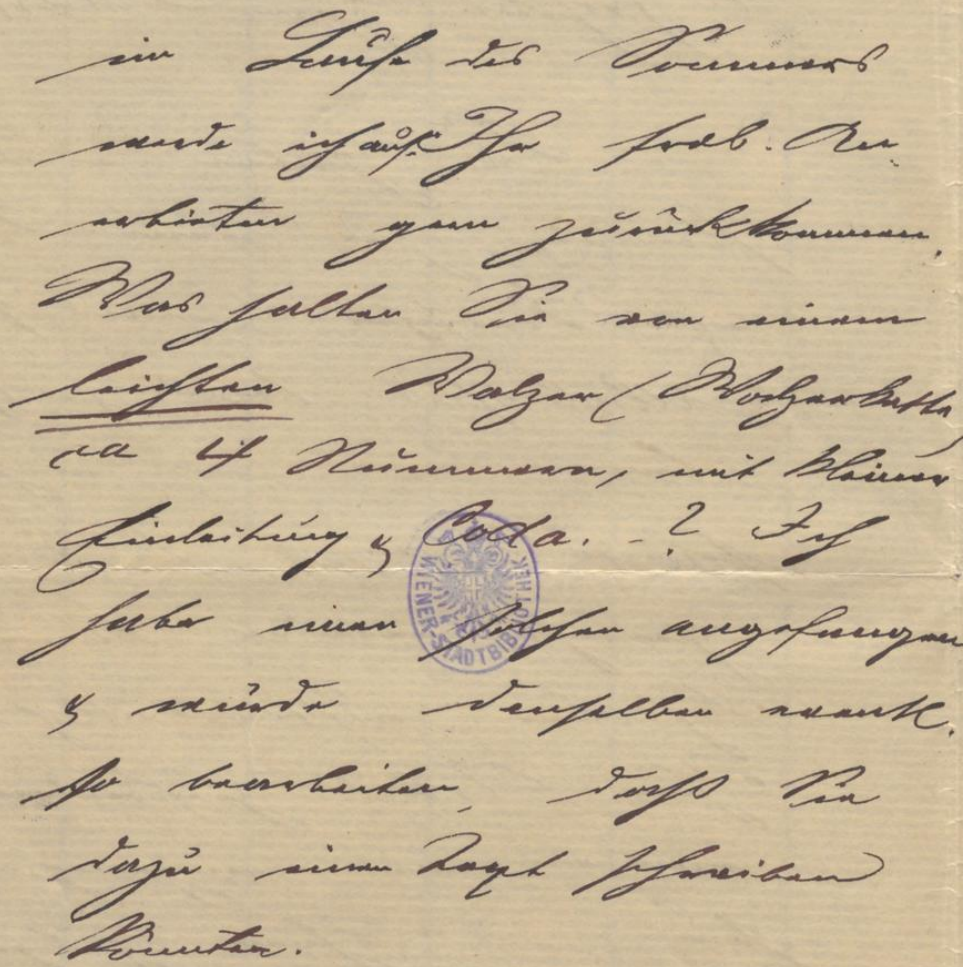 im Laufe des Sommers
werde ich auf Ihr frdl. An
erbieten gern zurückkommen.
Was halten Sie von einem
leichten Walzer (Walzerkette,
ca 4 Nummern, mit kleiner
Einleitung & Coda. - ? Ich
habe einen solchen angefangen
& würde denselben eventl.
so bearbeiten, daß Sie
dazu einen Text schreiben
könnten.
WIENER STADTBIBLIOTHEK